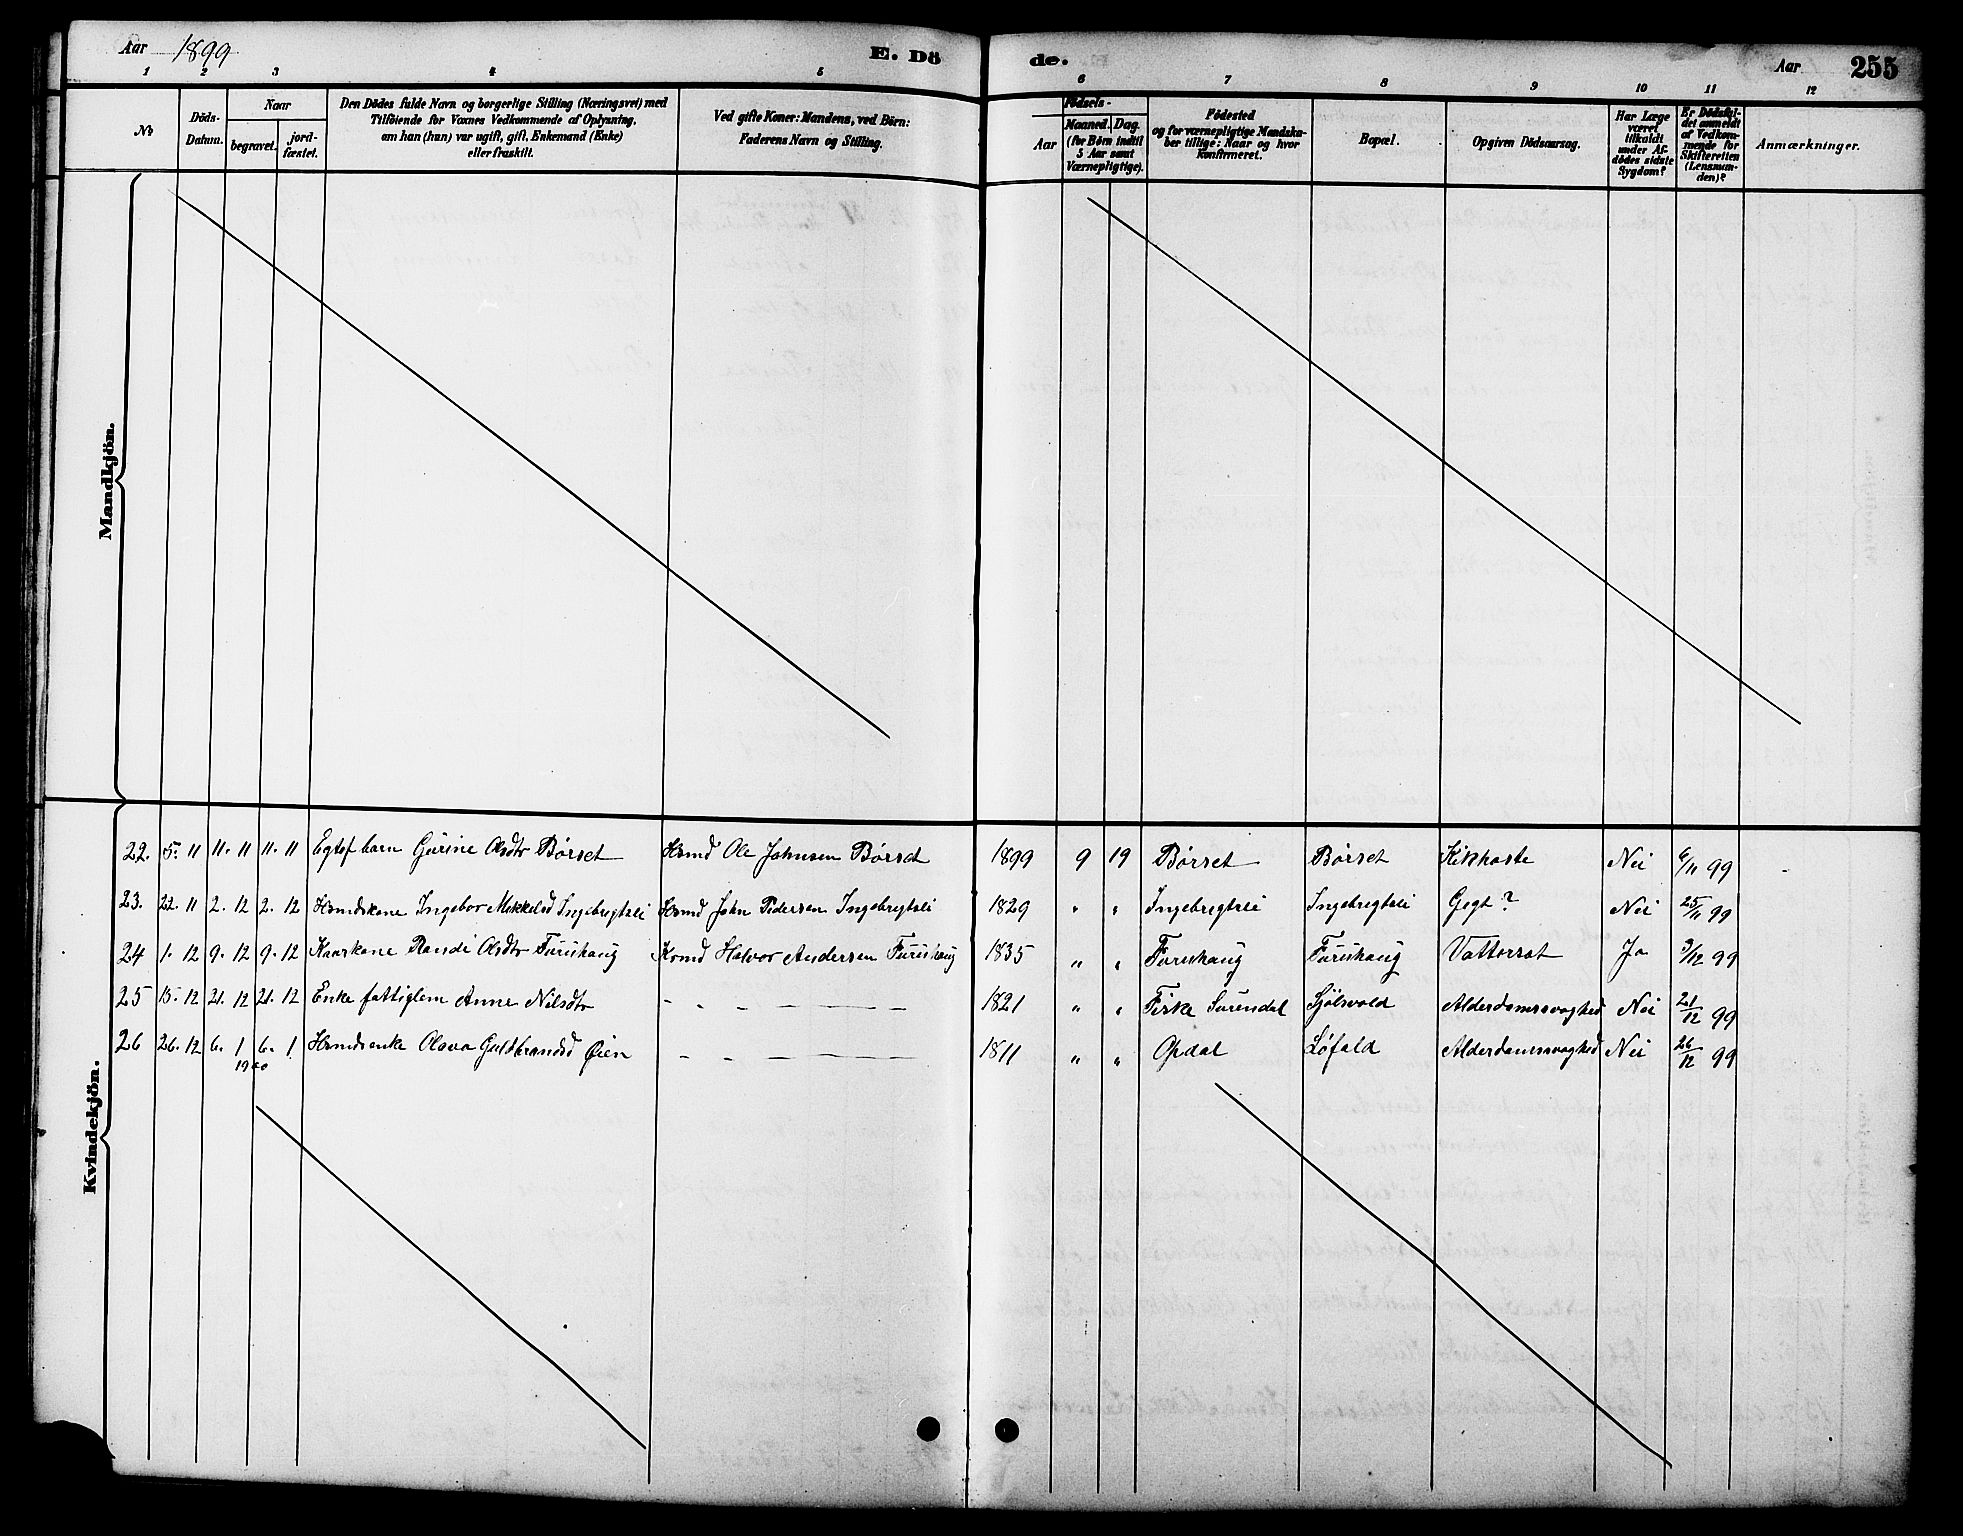 Aar 1899 E. Dö de. Aar 255
1 2 3 4 5 6 7 8 9 10 11 12
No
Döds-Datum.
Naar
begravet.
jord-fæstet.
Den Dödes fulde Navn og borgerlige Stilling (Næringsvei) med
Tilföiende for Voxnes Vedkommende af Oplysning,
om han (hun) var ugift, gift, Enkemand (Enke)
eller fraskilt.
Ved gifte Koner: Mandens, ved Börn:
Faderens Navn og Stilling.
Födsels-
Aar
Maaned. Dag.
(for Børn indtil
5 Aar samt
Værnepligtige).
Födested
og for værnepligtige Mandska-
ber tillige: Naar og hvor
konfirmeret.
Bopæl.
Opgiven Dödsaarsag.
Har Læge
været
tilkaldt
under Af-
dödes sidste
Sygdom?
Er Dödsfal-
det anmeldt
af Vedkom-
mende for
Skifteretten
(Lensman-
den)?
Anmærkninger.
Mandkjön.
Kvindekjön.
22. 5. 11 11. 11 11. 11 Egtef barn Gurine Olsdtr Børset Hsmd Ole Johnsen Børset 1899 9 19 Børset Børset Kikhoste Nei 6/11 99
23. 22. 11 2. 12 2. 12 Hsmdskone Ingebor Mikkelsd Ingebregtsli Hsmd John Pedersen Ingebregtsli 1829 " " Ingebregtsli Ingebregtsli Gegt? Nei 25/11 99
24 1. 12 9. 12 9. 12 Kaarkone Randi Olsdtr Furuhaug Krmd Halvor Andersen Furuhaug 1835 " " Furuhaug Furuhaug Vattersot Ja 9/12 99
25 15. 12 21. 12 21. 12 Enke fattiglem Anne Nilsdtr - - - — — — 1821 " " Fiske Surendal Sjølsvold Alderdomssvaghed Nei 21/12 99
26 26. 12 6. 1 6. 1 Hsmdsenke Olava Guldbrandsd Øien - - - — — — 1811 " " Opdal Løfald Alderdomssvaghed Nei 26/12 99
1900